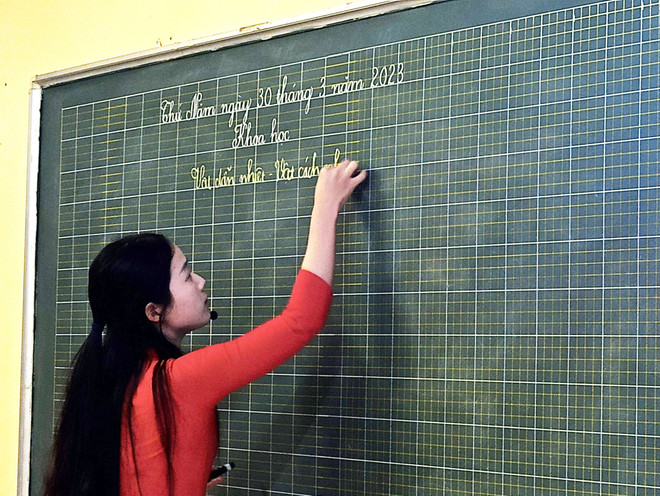 Thứ Năm ngày 30 tháng 3 năm 2023
Khoa học
Vật dẫn nhiệt - Vật cách nh